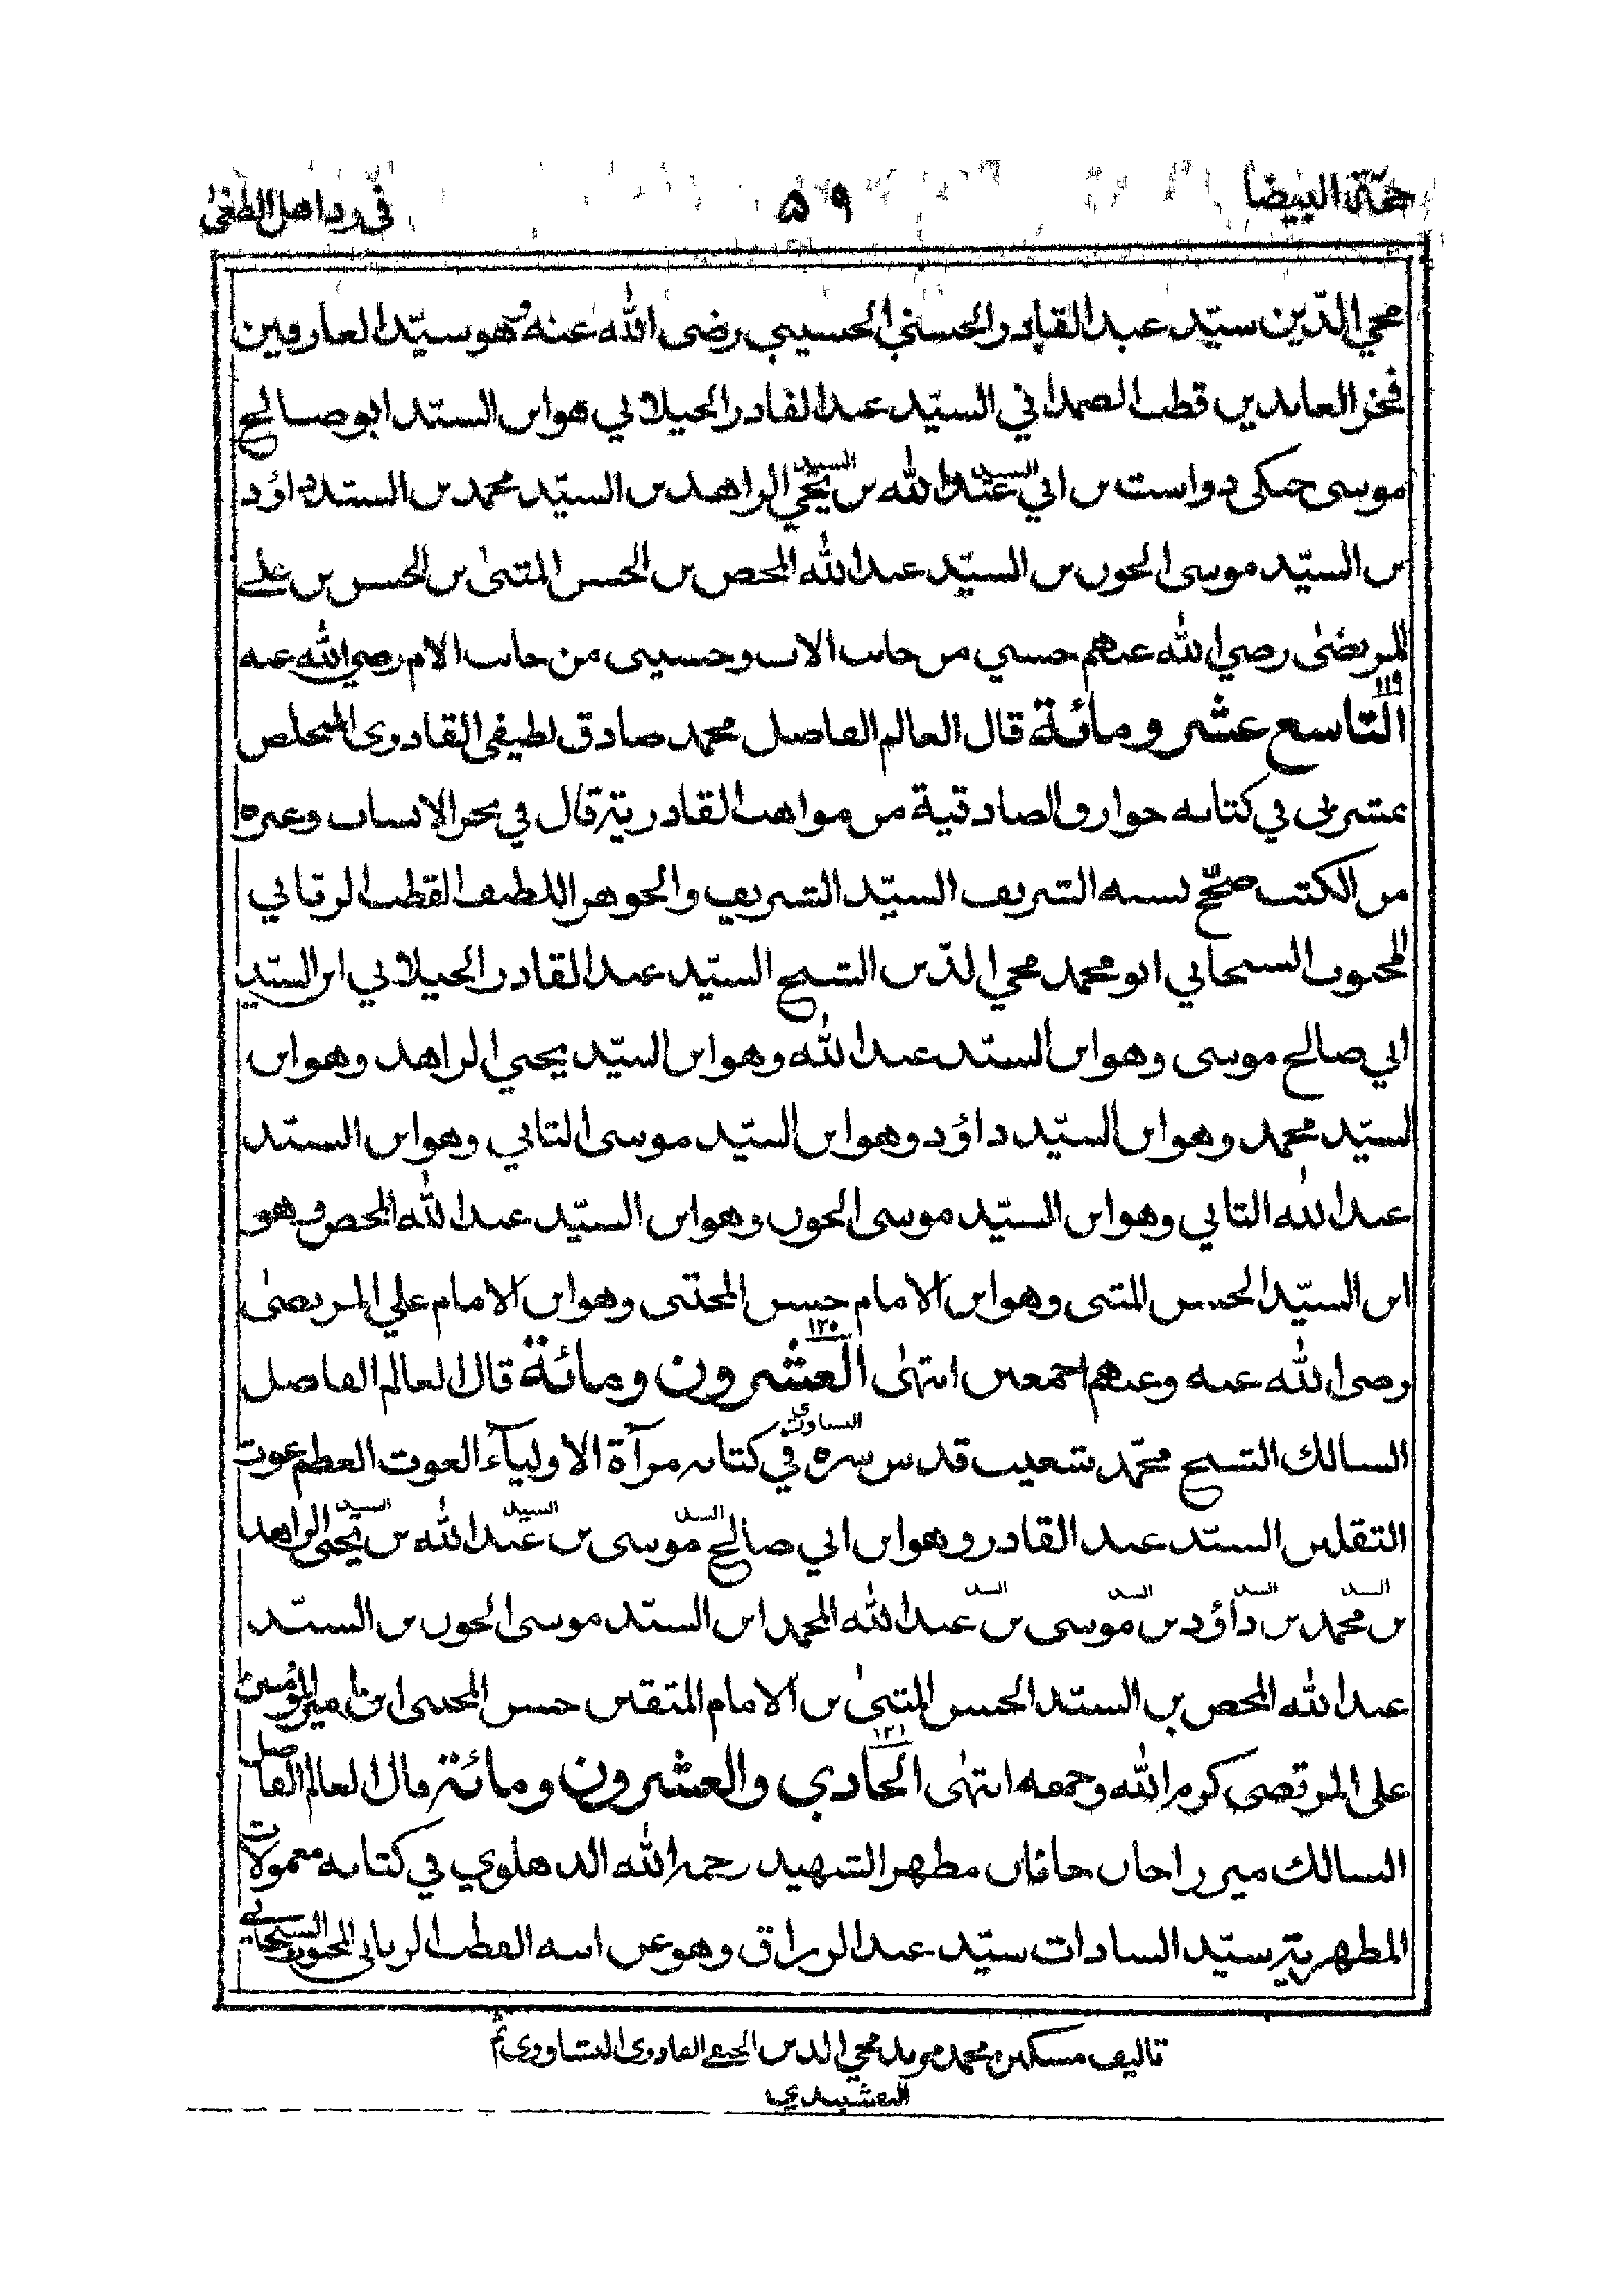 حجّة البيضا
۵۹
في رد اهل الطغى
محي الدّين سيّد عبد القادر الحسني الحسيني رضى الله عنه وهو سيّد العارفين
فخر العابدين قطب الصمداني السيّد عبد القادر الجيلاني هو ابن السيّد ابو صالح
موسى جنكى دواست بن ابي السيد عبد الله بن السيد يحيٰي الزاهد بن السيّد محمد بن السيّد داؤد
بن السيّد موسى الجون بن السيّد عبد الله المحض بن الحسن المثنىٰ بن الحسن بن علے
المرتضىٰ رضي الله عنهم حسني من جانب الاب وحسينى من جانب الام رضي الله عنه
١١٩
التاسع عشر ومائة قال العالم الفاضل محمد صادق لطيفى القادرى المتخلص
بمشربى في كتابه خوارق الصادقية من مواهب القادرية قال في بحر الانساب وغيره
من الكتب صحّ نسبه الشريف السيّد الشريف والجوهر اللطيف القطب الرباني
المحبوب السبحاني ابو محمد محي الدّين الشيخ السيّد عبد القادر الجيلاني ابن السيّد
ابي صالح موسى وهو ابن السيّد عبد الله وهو ابن السيّد يحيي الزاهد وهو ابن
لسيّد محمد وهو ابن السيّد داؤد وهو ابن السيّد موسى الثاني وهو ابن السيّد
عبد الله الثاني وهو ابن السيّد موسى الجون وهو ابن السيّد عبد الله المحض وهو
ابن السيّد الحسن المثنى وهو ابن الامام حسن المجتبى وهو ابن الامام علي المرتضىٰ
١٢٠
رضى الله عنه وعنهم اجمعين انتهىٰ العشرون ومائة قال العالم الفاضل
السالك الشيخ محمّد شعيب قدس سره في كتابه مرآة الاولياء الغوث العظم غوث
الثقلين السيّد عبد القادر وهو ابن ابي صالح السيد موسى بن السيد عبد الله بن السيد يحيى الزاهد
بن السيد محمد بن السيد داؤد بن السيد موسى بن السيد عبد الله المحمد ابن السيّد موسى الجون بن السيّد
عبد الله المحض بن السيّد الحسن المثنىٰ بن الامام المتقين حسن المجتبى ابن امير المؤمنين
١٢١
على المرتضى كرم الله وجهه انتهىٰ الحادي والعشرون ومائة قال العالم الفاضل
السالك ميرزا جان جانان مظهر الشهيد رحمه الله الدهلوي في كتابه معمولات
المظهرية سيّد السادات سيّد عبد الرزاق وهو عن ابيه القطب الرباني المحبوب السبحاني
تاليف مسكين محمد مريد محي الدين الحنفي القادرى البشاورى ثم
النقشبندي